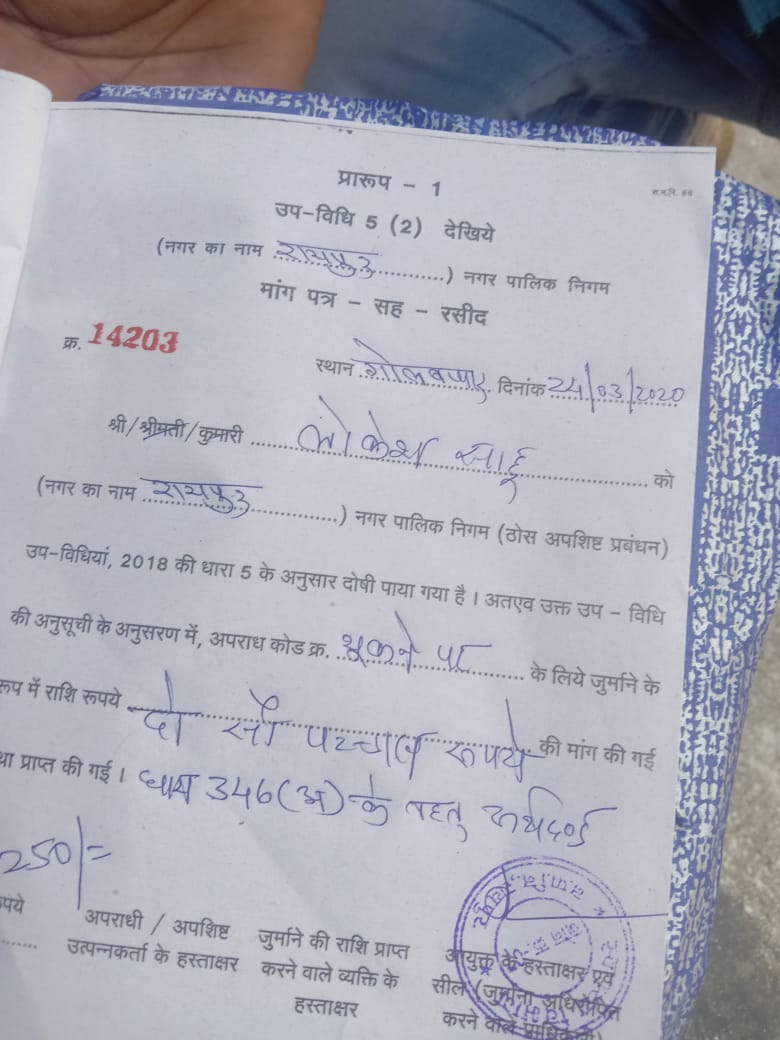 प्रारूप - 1
उप-विधि 5 (2) देखिये
(नगर का नाम रायपुर ............) नगर पालिक निगम
मांग पत्र - सह - रसीद
क्र. 14203
स्थान गोलबाजार दिनांक 24/03/2020
श्री/श्रीमती/कुमारी ..... लोकेश साहू ..... को
(नगर का नाम रायपुर ............) नगर पालिक निगम (ठोस अपशिष्ट प्रबंधन)
उप-विधियां, 2018 की धारा 5 के अनुसार दोषी पाया गया है। अतएव उक्त उप - विधि
की अनुसूची के अनुसरण में, अपराध कोड क्र. थूकने पर ........ के लिये जुर्माने के
रूप में राशि रूपये दो सौ पच्चास रूपये की मांग की गई
प्राप्त की गई। धारा 346(अ) के तहत अर्थदण्ड
250/=
अपराधी / अपशिष्ट जुर्माने की राशि प्राप्त आयुक्त के हस्ताक्षर एवं
उत्पन्नकर्ता के हस्ताक्षर करने वाले व्यक्ति के सील (जुर्माना अधिरोपित
हस्ताक्षर करने वाले प्राधिकारी)